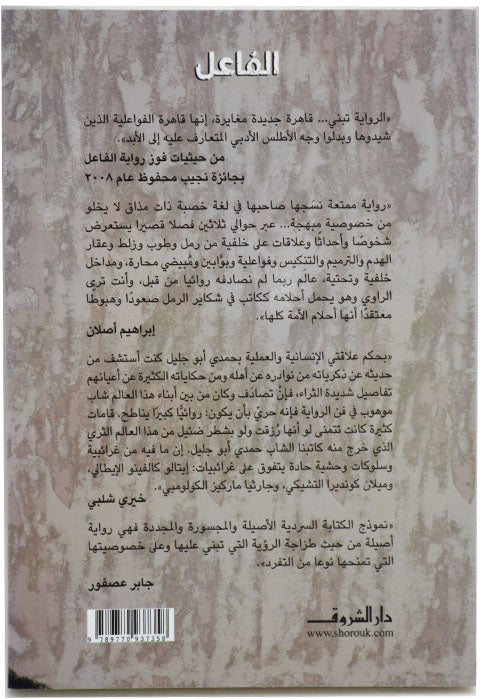 الفاعل
«الرواية تبني... قاهرة جديدة مغايرة، إنها قاهرة الفواعلية الذين
شيدوها وبدلوا وجه الأطلس الأدبي المتعارف عليه إلى الأبد».
من حيثيات فوز رواية الفاعل
بجائزة نجيب محفوظ عام ٢٠٠٨
«رواية ممتعة نسجها صاحبها في لغة خصبة ذات مذاق لا يخلو
من خصوصية مبهجة... عبر حوالي ثلاثين فصلا قصيرا يستعرض
شخوصًا وأحداثًا وعلاقات على خلفية من رمل وطوب وزلط وعقار
الهدم والترميم والتنكيس وفواعلية وبوَّابين ومُبيضي محارة، ومداخل
خلفية وتحتية، عالَم ربما لم نصادفه روائيا من قبل، وأنت ترى
الراوي وهو يحمل أحلامه ككاتب في شكاير الرمل صعودًا وهبوطًا
معتقدًا أنها أحلام الأمة كلها».
إبراهيم أصلان
«بحكم علاقتي الإنسانية والعملية بحمدي أبو جليل كنت أستشف من
حديثه عن ذكرياته من نوادره عن أهله ومن حكاياته الكثيرة عن أعيانهم
تفاصيل شديدة الثراء، فإنْ تصادَف وكان من بين أبناء هذا العالم شاب
موهوب في فن الرواية فإنه حريّ بأن يكون: روائيًّا كبيرًا يناطح، قامات
كثيرة كانت تتمنى لو أنها رُزقت ولو بشطر ضئيل من هذا العالم الثري
الذي خرج منه كاتبنا الشاب حمدي أبو جليل. إن ما فيه من غرائبية
وسلوكات وحشية حادة يتفوق على غرائبيات: إيتالو كالفينو الإيطالي،
وميلان كونديرا التشيكي، وجارثيا ماركيز الكولومبي».
خيري شلبي
«نموذج الكتابة السردية الأصيلة والمجسورة والمجددة فهي رواية
أصيلة من حيث طزاجة الرؤية التي تبني عليها وعلى خصوصيتها
التي تمنحها نوعا من التفرد».
جابر عصفور
دار الشروق
www.shorouk.com
9 789770 937358